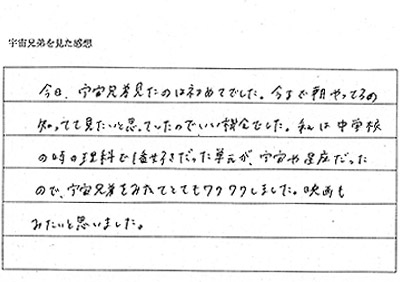 宇宙兄弟を見た感想
今日、宇宙兄弟見たのは初めてでした。今まで朝やってるの
知ってて見たいと思っていたのでいい機会でした。私は中学校
の時の理科で1番好きだった単元が、宇宙や星座だった
ので、宇宙兄弟をみたてとてもワクワクしました。映画も
みたいと思いました。